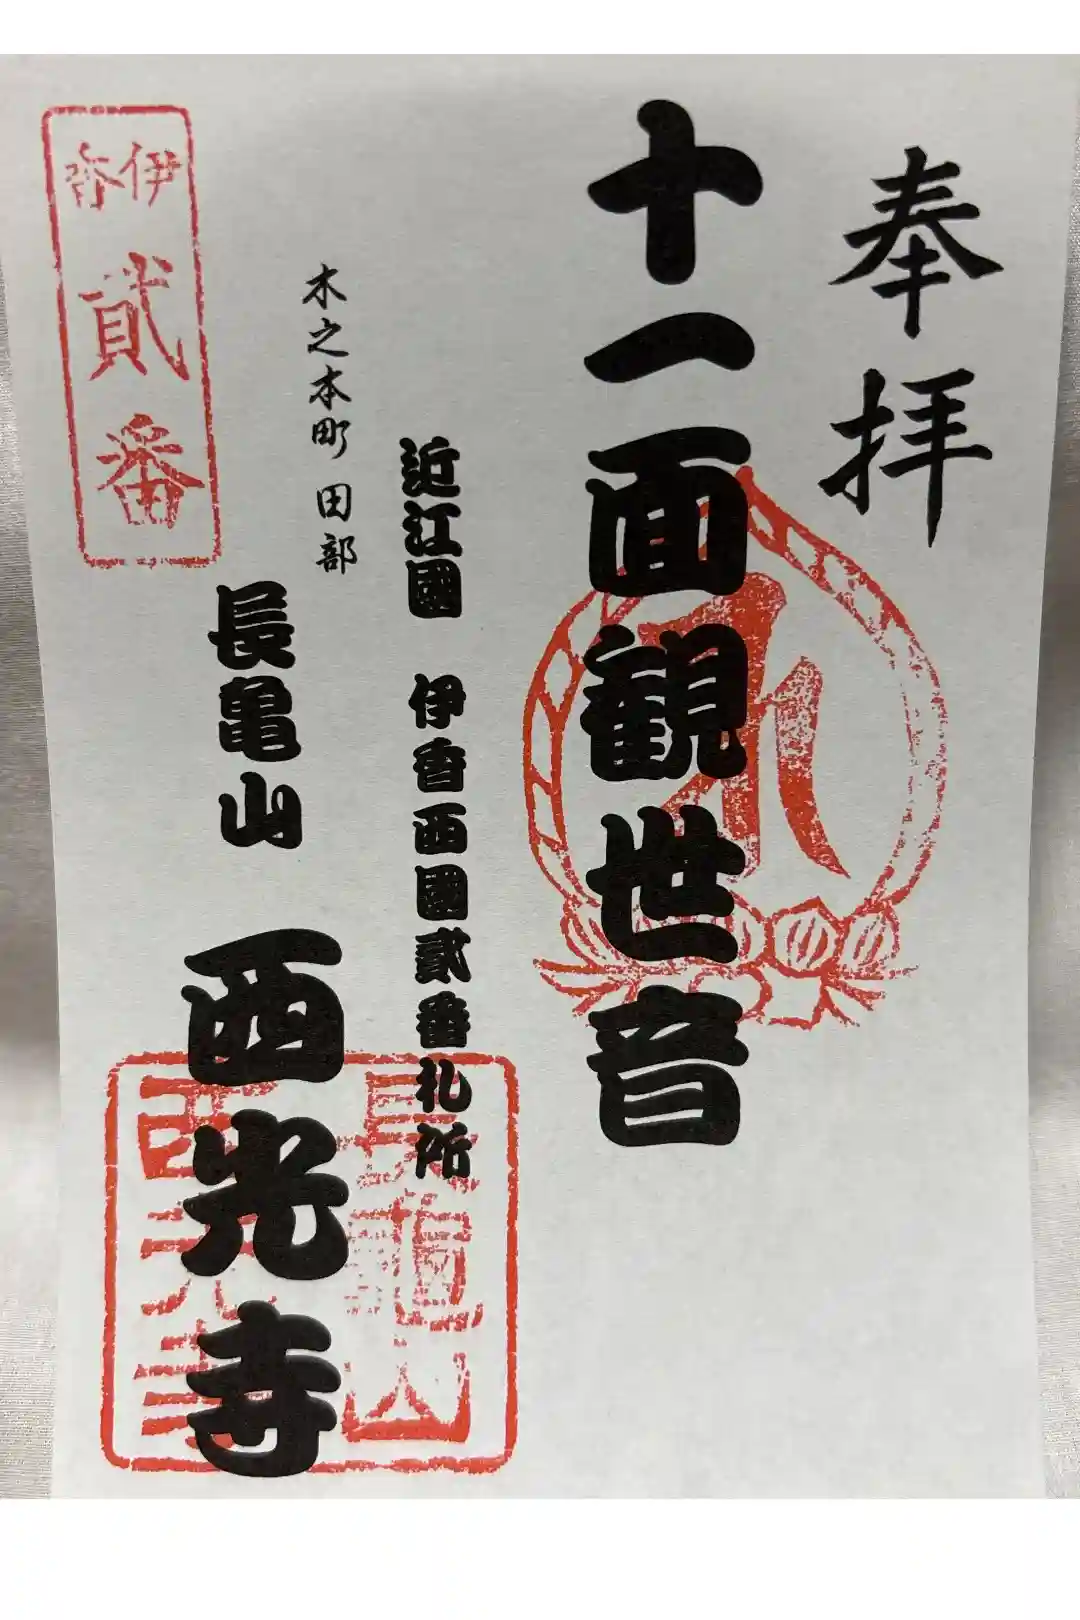 奉拝
十一面観世音
近江國 伊香西國貳番札所
木之本町 田部
長亀山 西光寺
伊香
貳番
長龜山
西光寺